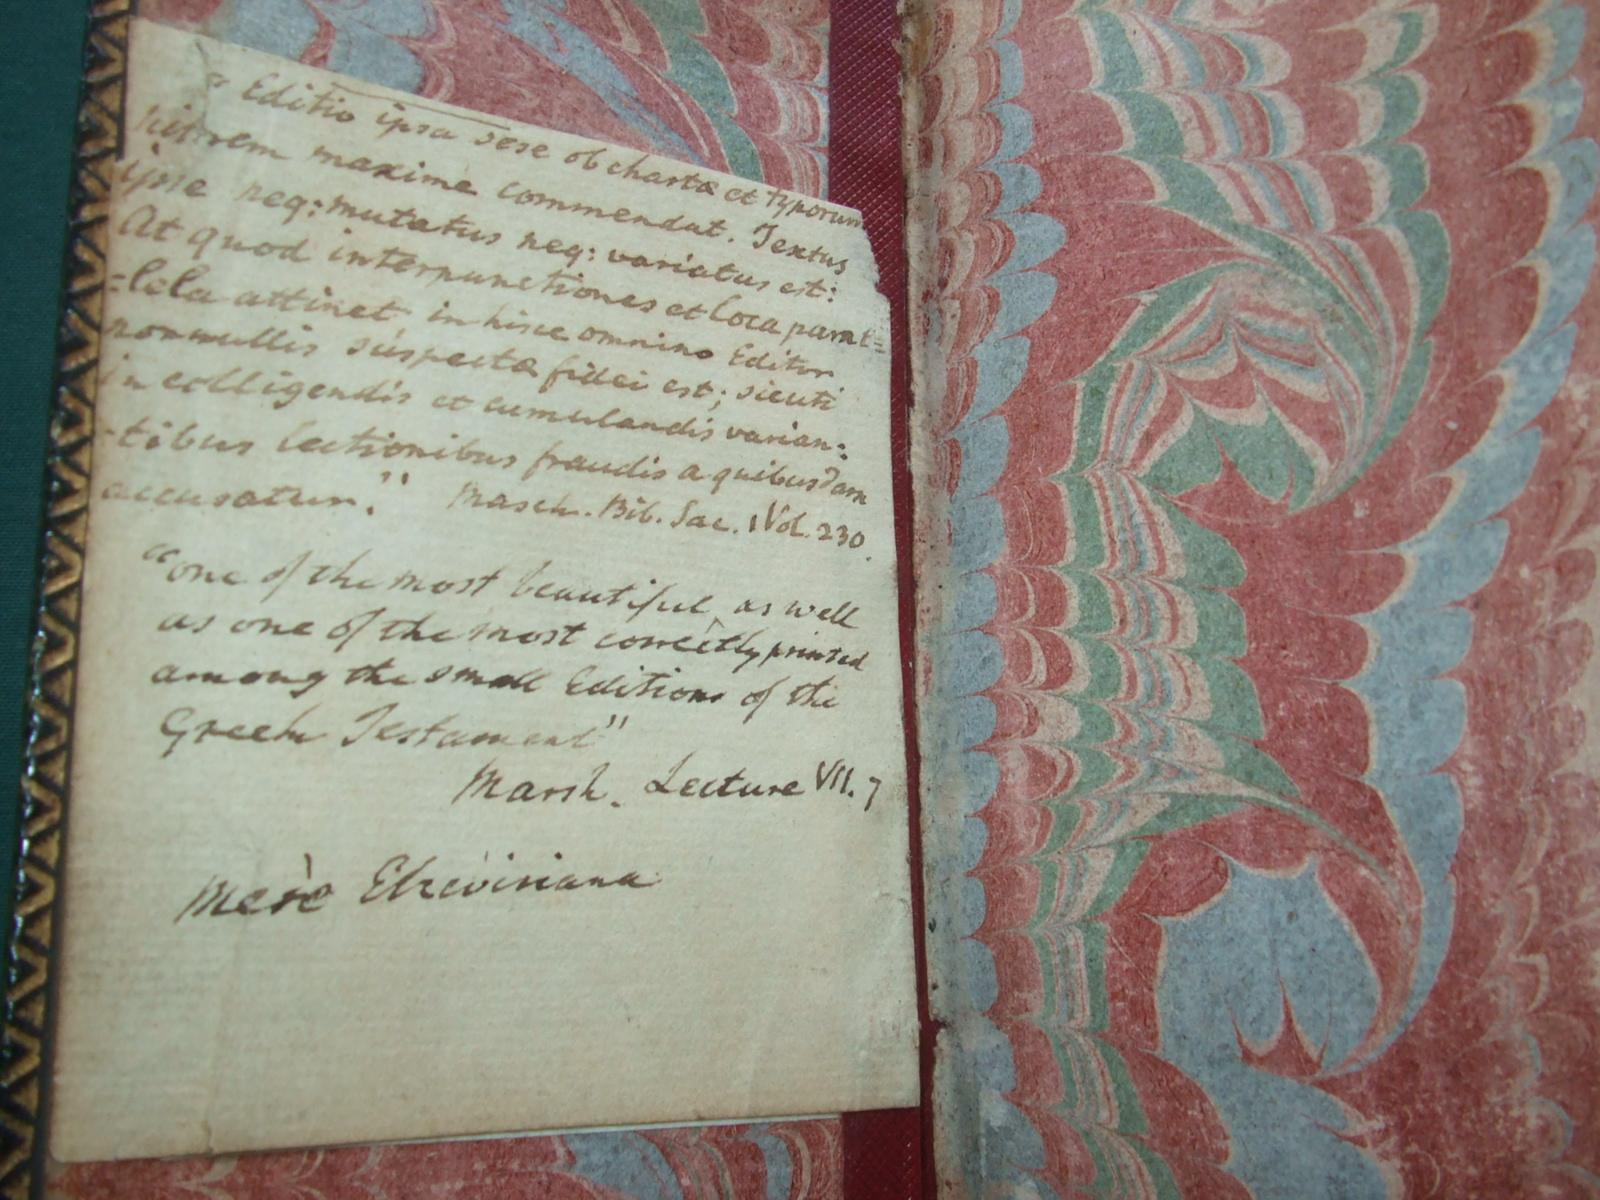 "Editio ipsa sese ob chartæ et typorum
nitorem maxime commendat. Textus
ipse neq: mutatus neq: variatus est:
At quod interpunctiones et loca paral=
=lela attinet in hisce omnino Editor
nonnullis suspectæ fidei est; sicuti
in colligendis et cumulandis varian:
-tibus lectionibus fraudis a quibusdam
accusatur." Masch. Bib. Sac. 1 Vol. 230.
"one of the most beautiful, as well
as one of the most correctly printed
among the small Editions of the
Greek Testament"
Marsh. Lecture VII. 7
Merè Elzeviriana